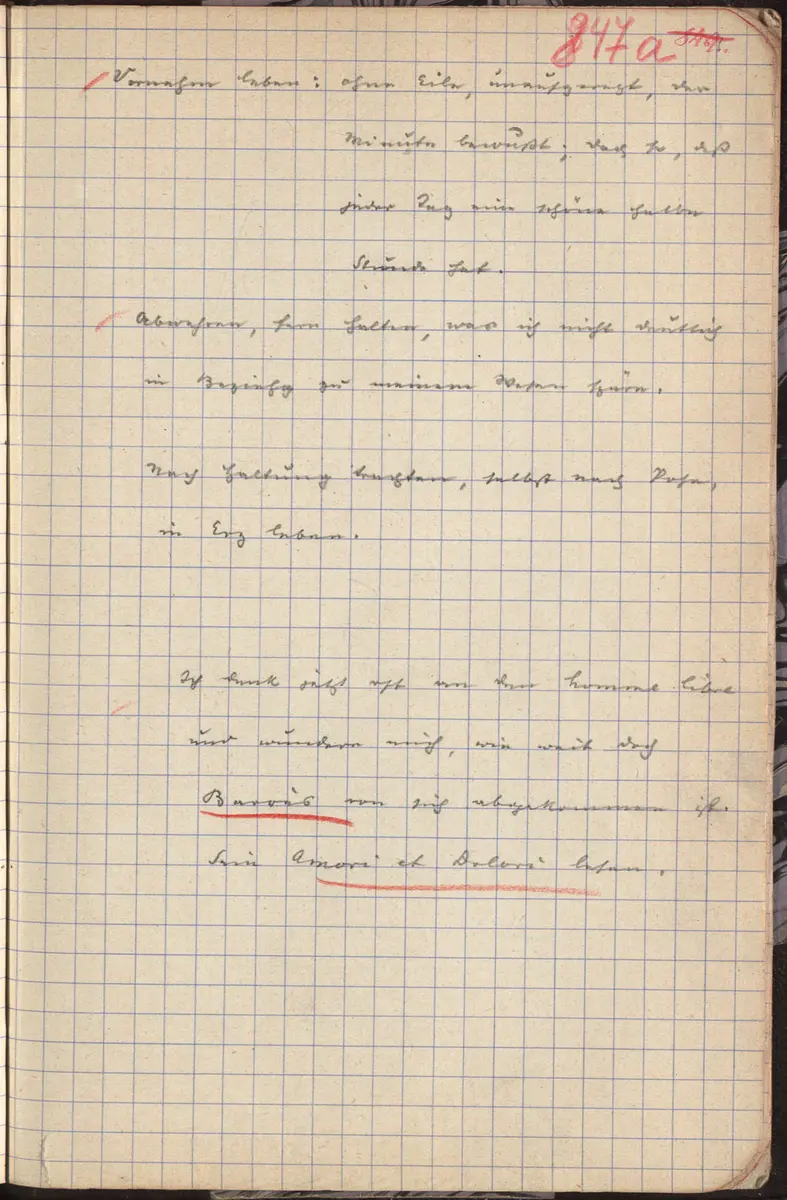 847a
Vornehm leben: ohne Eile, unaufgeregt, der
Minute bewußt; doch so, daß
jeder Tag eine schöne halbe
Stunde hat.
Abwehren, fern halten, was ich nicht deutlich
in Beziehg zu meinem Wesen spüre.
Nach Haltung trachten, selbst nach Pose,
in Erz leben.
Ich denk jetzt oft an den homme libre
und wundere mich, wie weit doch
Barrès von sich abgekommen ist.
Sein Amori et Dolori lesen.